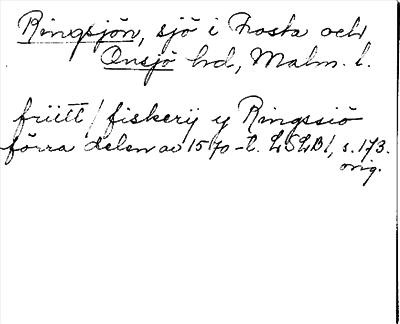 Ringsjön, sjö i Frosta och
Onsjö hd, Malm. l.
friitt / fiskerij y Ringssiö
förra delen av 1570-t. LSLB1, s. 173.
orig.